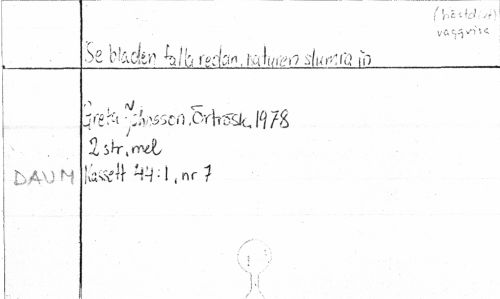 (höstdikt)
vaggvisa
Se bladen falla redan, naturen slumra in
Greta Johnsson, Örträsk, 1978
2 str, mel
DAUM Kassett 44:1, nr 7